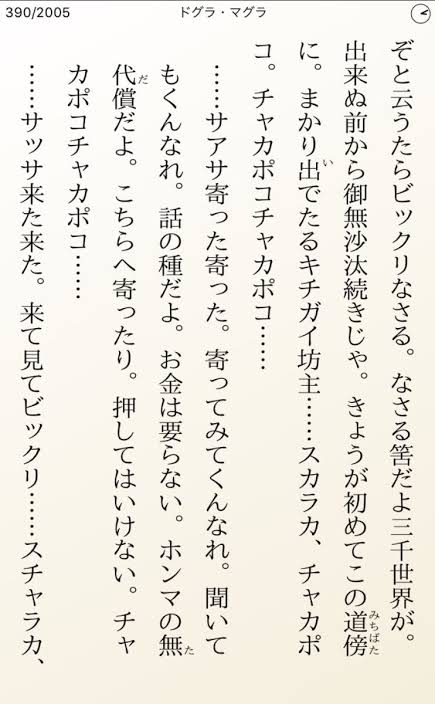 390/2005
ドグラ・マグラ
ぞと云うたらビックリなさる。なさる筈だよ三千世界が。
出来ぬ前から御無沙汰続きじゃ。きょうが初めてこの道傍
みちばた
に。まかり出でたるキチガイ坊主……スカラカ、チャカポ
い
コ。チャカポコチャカポコ……
……サアサ寄った寄った。寄ってみてくんなれ。聞いて
もくんなれ。話の種だよ。お金は要らない。ホンマの無
た
代償だよ。こちらへ寄ったり。押してはいけない。チャ
だ
カポコチャカポコ……
……サッサ来た来た。来て見てビックリ……スチャラカ、